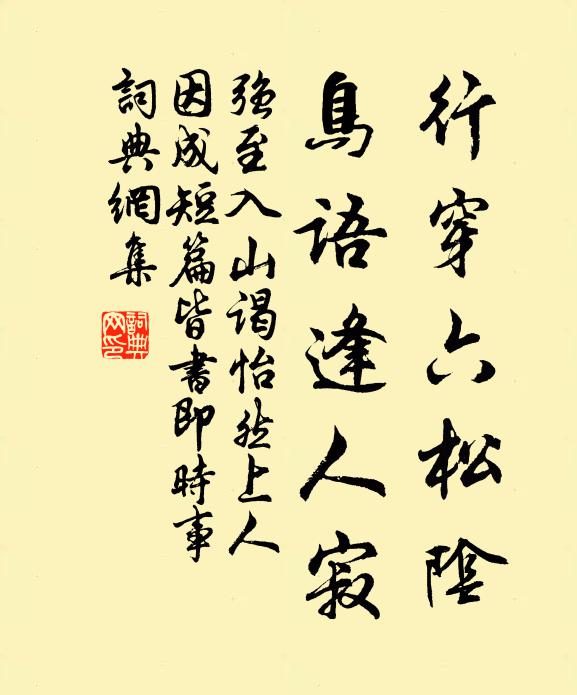 行穿六松陰
鳥語逢人寂
強至入山謁怡然上人
因成短篇皆書即時事
詞典網集
詞典網印